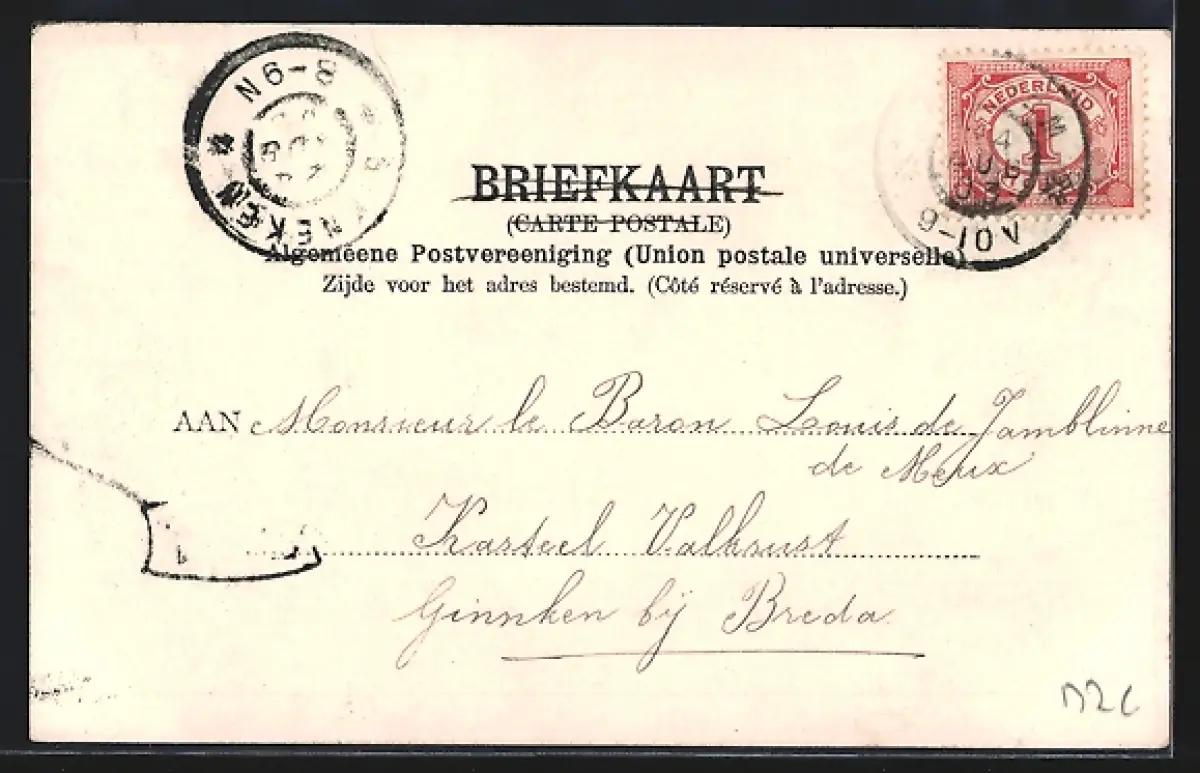 N6-8
NEKEN
NEDERLAND
1
4
AUG
03
6-10V
BRIEFKAART
(CARTE POSTALE)
Algemeene Postvereeniging (Union postale universelle)
Zijde voor het adres bestemd. (Côté réservé à l'adresse.)
AAN Monsieur le Baron Louis de Jamblinne
de Meux
Kasteel Valkrust
Ginnken bij Breda